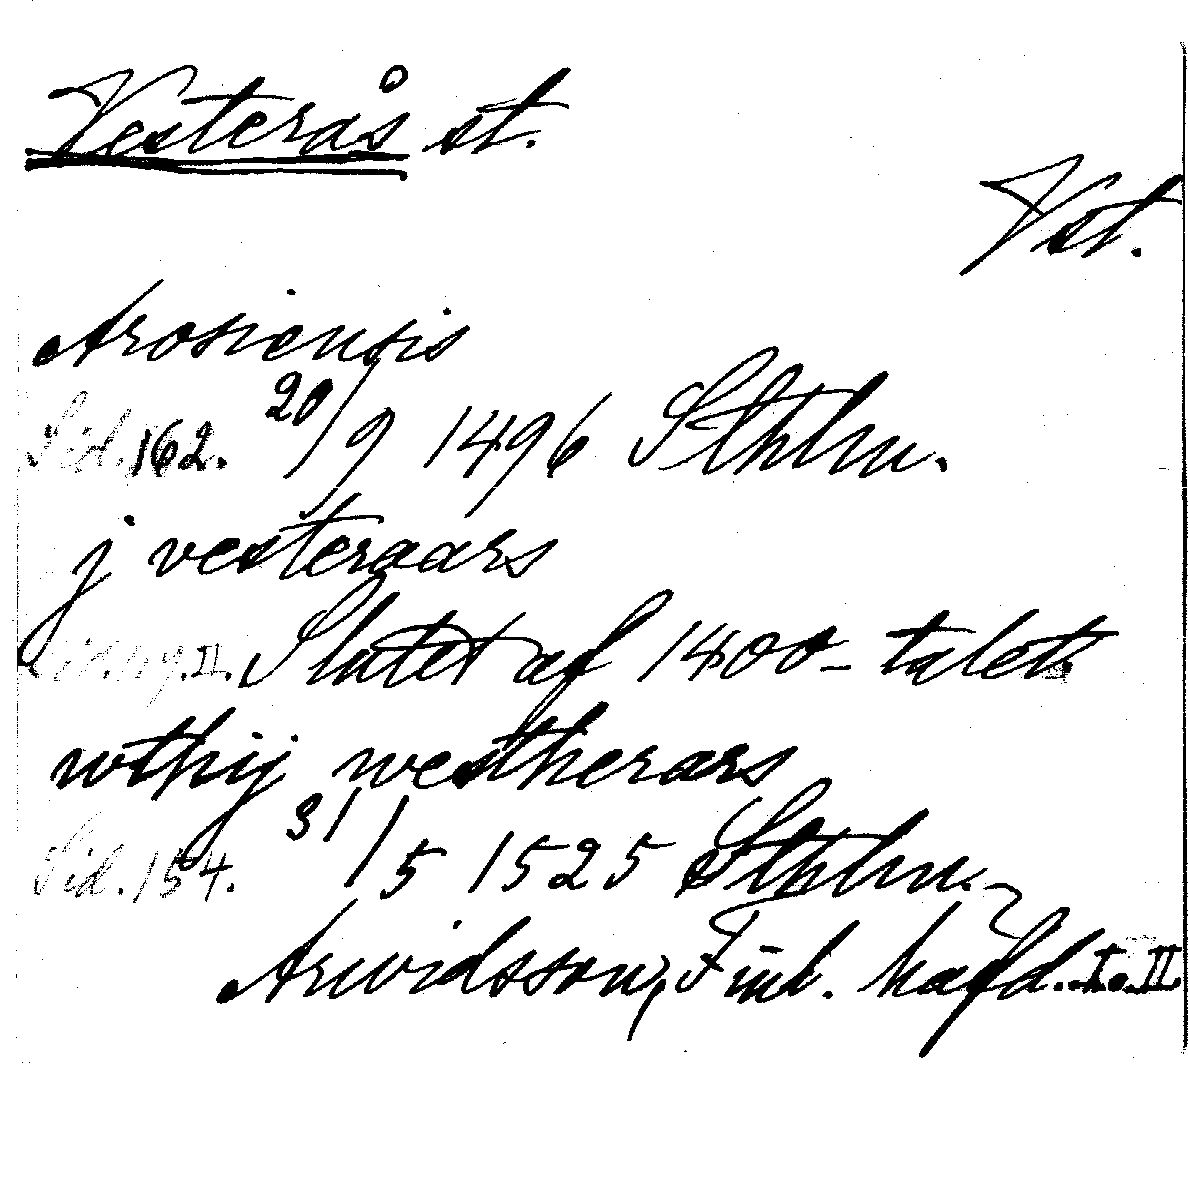 Vesterås st.
Vst.
Arosiensis
Sid. 162. 20/9 1496 Sthlm.
j vesteraars
II. Slutet af 1400-talet.
wthij westherars
Sid. 154. 31/5 1525 Sthlm.
Arwidsson, Finl. häfd. I o. II